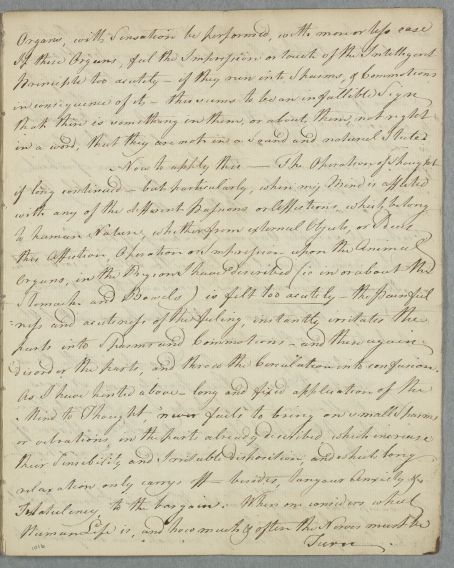 Organs, with Sensation be performed, with more or less ease
If these Organs, feel the Impression or touch of the Intelligent
Principle too acutely – if they run into Spasms, & Commotions
in consequence of it – this seems to be an infallible Sign
that there is something in them, or about them, not right
in a word, that they are not in a sound and natural State
Now to apply this — The Operation of Thought
if long continued – but particularly, when my Mind is affected
with any of the different Passions or Affections, which belong
to human Nature, whether from external Objects, or Ideas
this Affection, Operation or impression upon the Animal
Organs, in the Regions I have described (ie in or about the
Stomach and Bowels) is felt too acutely – the Painful
=ness and acuteness of the feeling, instantly irritates the
parts into Spasms and Commotions – and these again
disorder the parts, and throw the Circulation into confusion.
As I have hinted above – long and fixed application of the
Mind to Thought never fails to bring on small Spasms
or vibrations, in the parts already described, which increase
their Sensibility and Irritable disposition, and which long
relaxation only carrys off – besides, languor Anxiety &
Flatulency, to the bargain. When one considers what
Human Life is, and how much & often the Nerves must be
1016